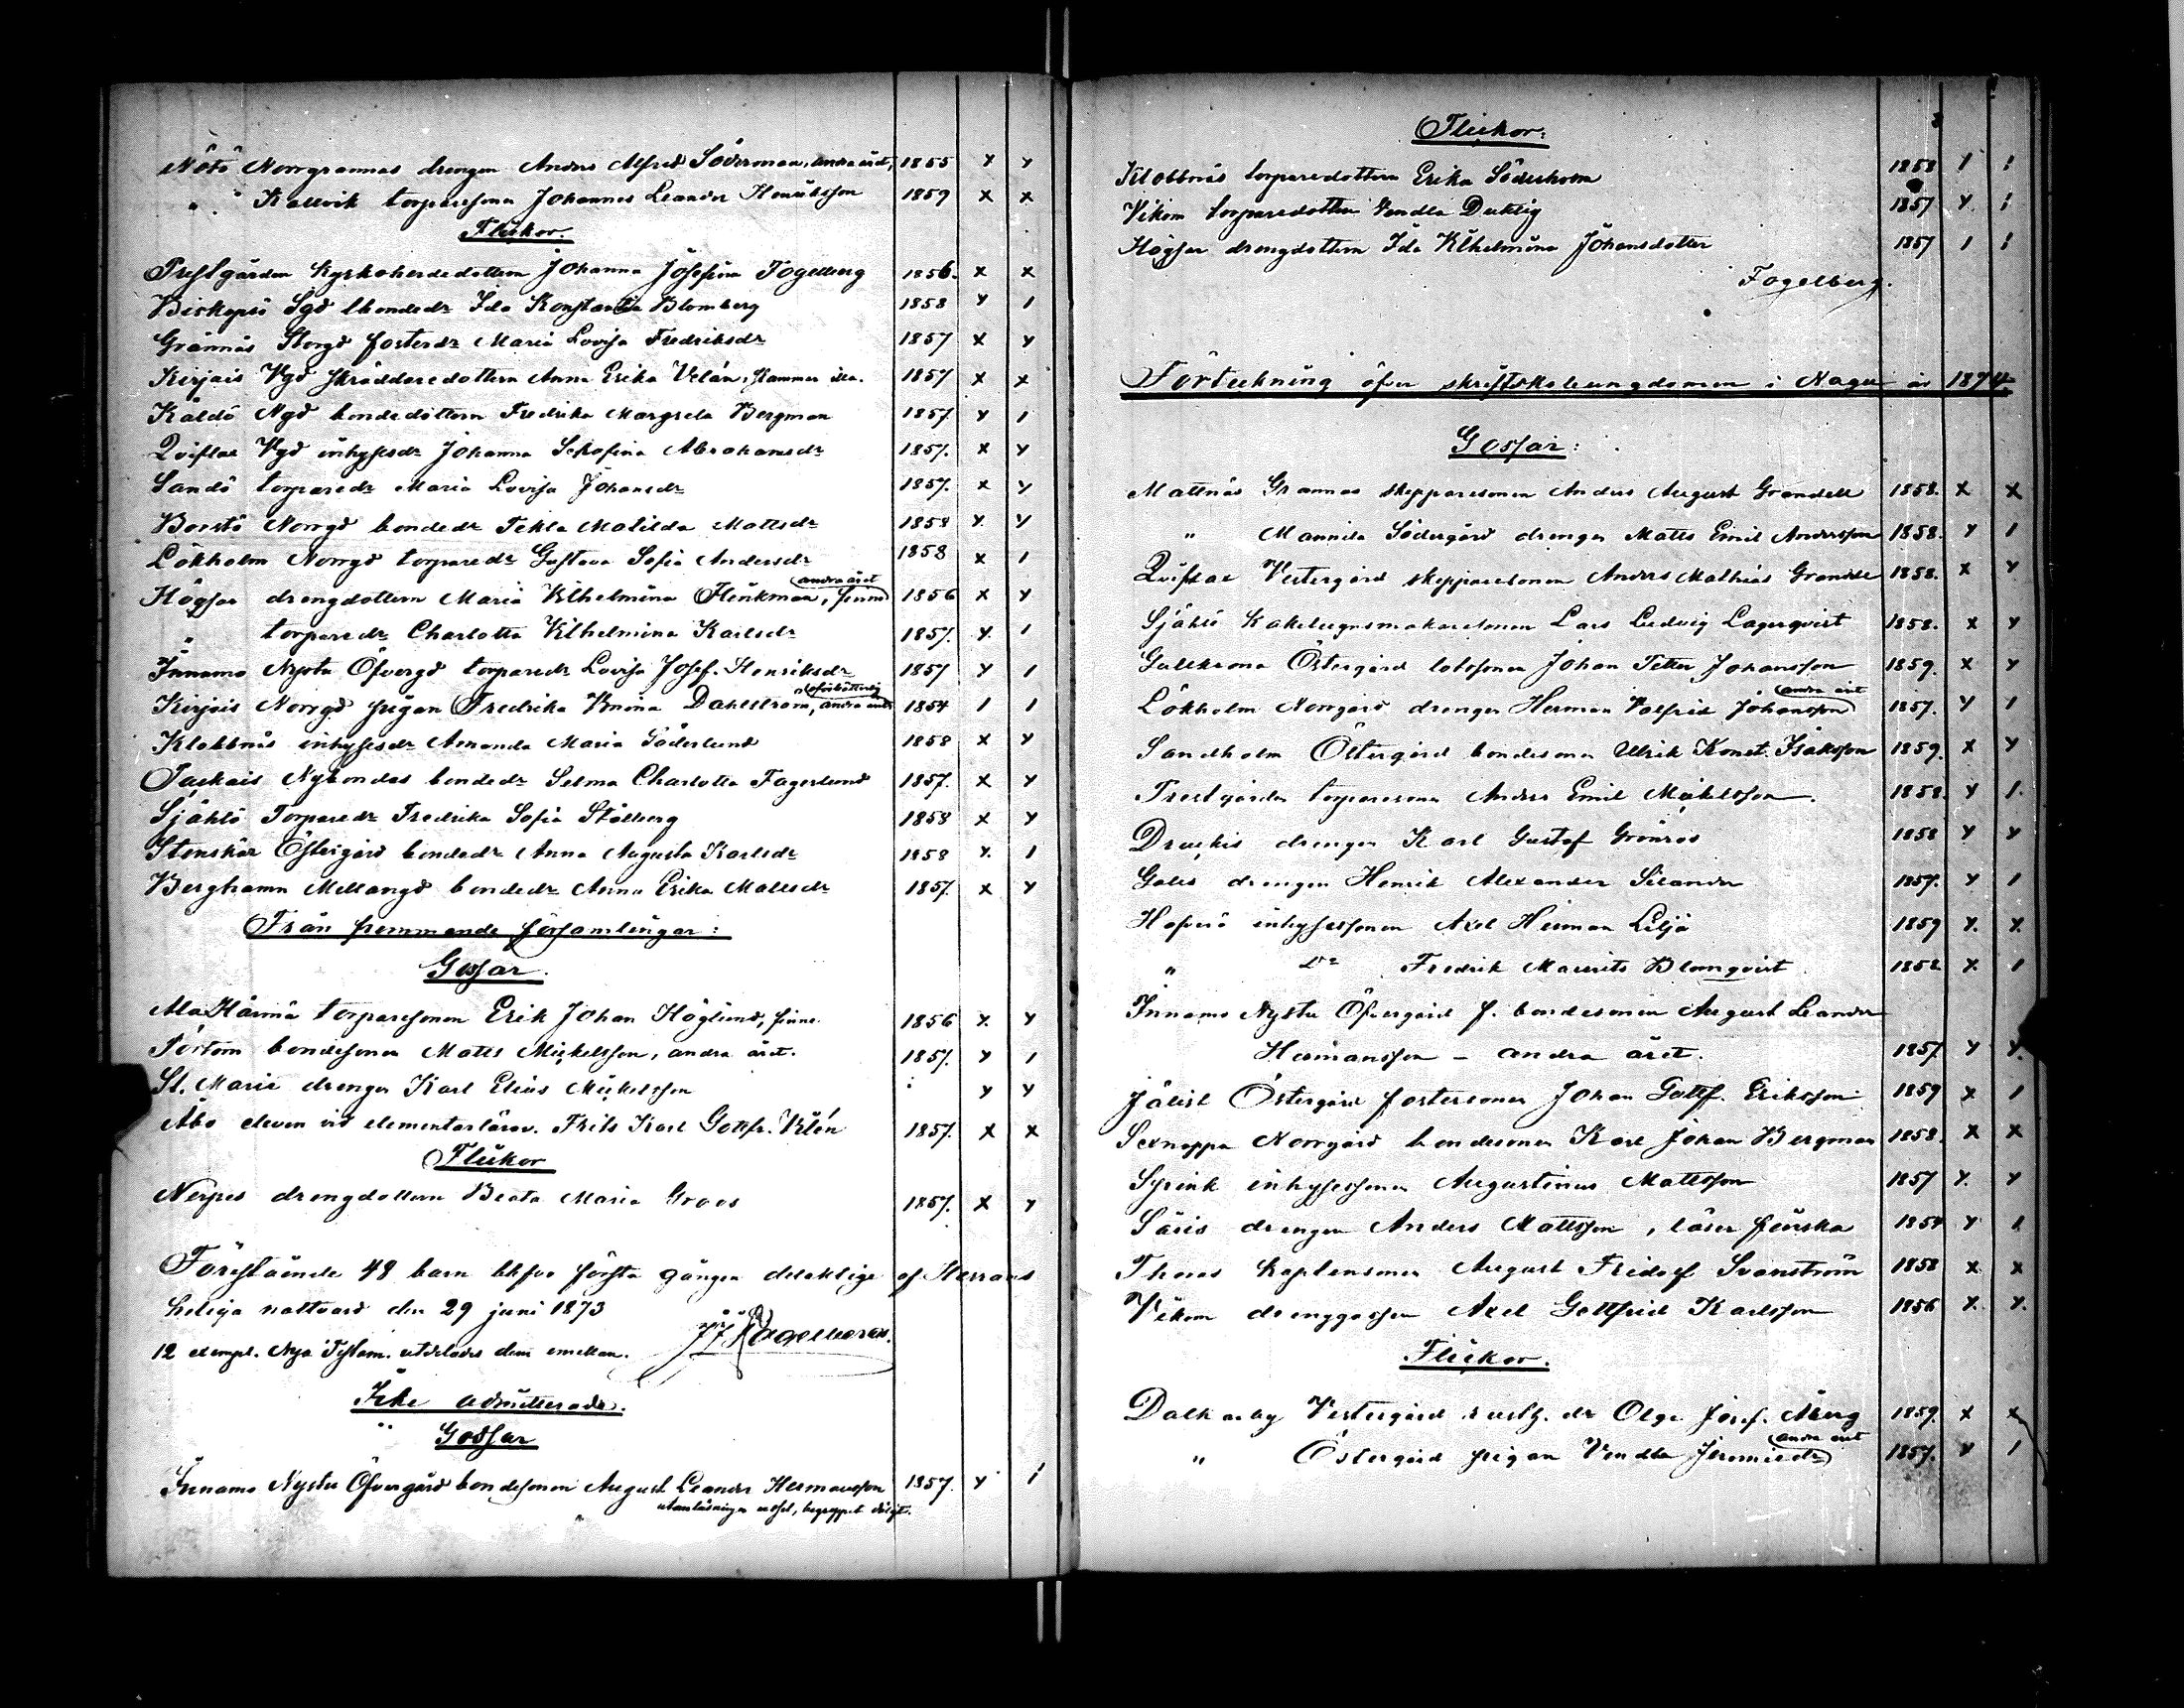 Nötö Norrgrannas drengen Anders Alfred Söderman, andra året, 1855 x y
" Kallvik torparesonen Johannes Leander Henriksson 1859 x x
Flickor.
Prestgården kyrkoherdedottern Johanna Josefina Fogelberg 1856. x x
Biskopsö Sgd bondedr Ida Konstantia Blomberg 1858 y 1
Grännäs Storgd fosterdr Maria Lovisa Fredriksdr 1857 x y
Kirjais Vgd skräddaredottern Anna Erika Velán, stammar illa. 1857 x x
Käldö Ngd bondedottern Fredrika Margreta Bergman 1857. y 1
Qviflax Vgd inhysesdr Johanna Serafina Abrahamsdr 1857. x y
Sandö torparedr Maria Lovisa Johansdr 1857. x y
Borstö Norrgd bondedr Tekla Matilda Mattsdr 1858 y. y
Lökholm Norrgd torparedr Gustava Sofia Andersdr 1858 x 1
Högsar drengdottern Maria Vilhelmina Flinkman, finne andra året 1856 x y
" torparedr Charlotta Vilhelmina Karlsdr 1857. y. 1
Innamo Nystu Öfvergd torparedr Lovisa Josef. Henriksdr 1857 y 1
Kirjais Norrgd pigan Fredrika Vnina Dahlström, andra året oförbätterlig 1854 1 1
Klobbnäs inhysesdr Amanda Maria Söderlund 1858 x y
Packais Nybondas bondedr Selma Charlotta Fagerlund 1857. x y
Själö Torparedr Fredrika Sofia Stålberg 1858 x y
Stenskär Östergård bondedr Anna Augusta Karlsdr 1858 y. 1
Berghamn Mellangd bondedr Anna Erika Mattsdr 1857. x y
Från fremmande församlingar:
Gossar.
Ala Härmä torparesonen Erik Johan Höglund, finne. 1856 y. y
Pörtom bondesonen Matts Mickelsson, andra året. 1857. y 1
St. Marie drengen Karl Elius Mickelsson y y
Åbo eleven vid elementarlärov. Frits Karl Gottfr. Vilén 1857. x x
Flickor
Nerpes drengdottern Beata Maria Groos 1857. x y
Förestående 48 barn blefvo första gången delaktige af Herrans
heliga nattvard den 29 juni 1873
12 exempl. Nya Testam. utdelades dem emellan. J J Fogelberg.
Icke admitterade.
Gossar
Innamo Nystu Öfvergård bondesonen August Leander Hermansson 1857. y 1
utanläsningen usel, begreppet dåligt.
Flickor:
Klobbnäs torparedottern Erika Söderholm 1858 1 1
Vikom torparedottern Vendla Decklig 1857 y 1
Högsar drengdottern Ida Vilhelmina Johansdotter 1857 1 1
Fogelberg.
Förteckning öfver skriftskoleungdomen i Nagu år 1874
Gossar:
Mattnäs Grannas skepparesonen Anders August Grandell 1858. x x
" Mannila Södergård drengen Matts Emil Andersson 1858. y 1
Qviflax Vestergård skepparesonen Anders Mathias Grandell 1858. x y
Själö Kakelugnsmakaresonen Lars Ludvig Lagerqvist 1858. x y
Gullkrona Östergård lotssonen Johan Petter Johansson 1859. x y
Lökholm Norrgård drengen Herman Valfrid Johansson andra året 1857. y 1
Sandholm Östergård bondesonen Ulrik Konst. Isaksson 1859. x y
Prestgården torparesonen Anders Emil Mickelsson. 1858. y 1.
Druckis drengen Karl Gustaf Grönros 1858 y y
Galts drengen Henrik Alexander Silander 1857. y 1
Hafverö inhysessonen Axel Herman Lilja 1859 y. y.
" Dr Fredrik Maurits Blomqvist 1858 y. 1
Innamo Nystu Öfvergård f. bondesonen August Leander
Hermansson - andra året. 1857 y y.
Jälist Östergård fostersonen Johan Gottf. Eriksson 1859 x 1
Sexnappa Norrgård bondesonen Karl Johan Bergman 1858. x x
Spink inhysessonen Augustinus Mattsson 1857 y. y
Säris drengen Anders Mattsson, läser finska 1854 y 1
Thoras kaplansonen August Fridolf Svanström 1858 x x
Vikom drenggossen Axel Gottfrid Karlsson 1856 y. y.
Flickor.
Dalkarby Vestergård rusth. dr Olga Josef. Åberg 1859. x x
" Östergård pigan Vendla Jeremiedr andra året 1857. y 1